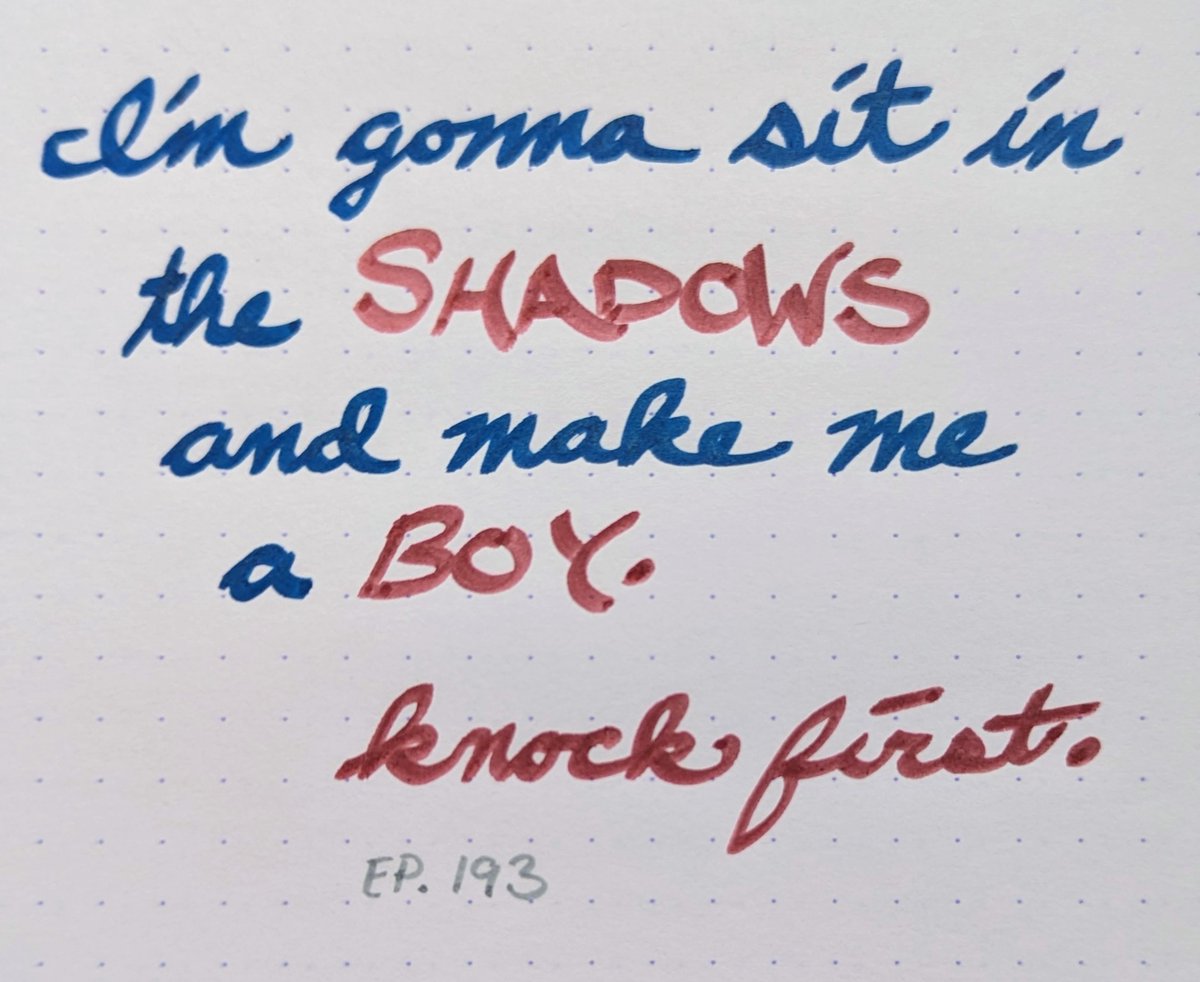 I'm gonna sit in
the SHADOWS
and make me
a BOY.
knock first.
EP. 193